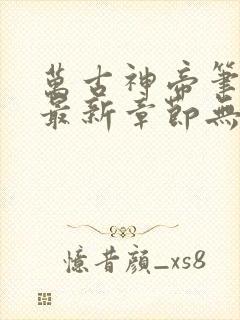 萬古神帝筆
最新章節無
憶昔顏_xs8